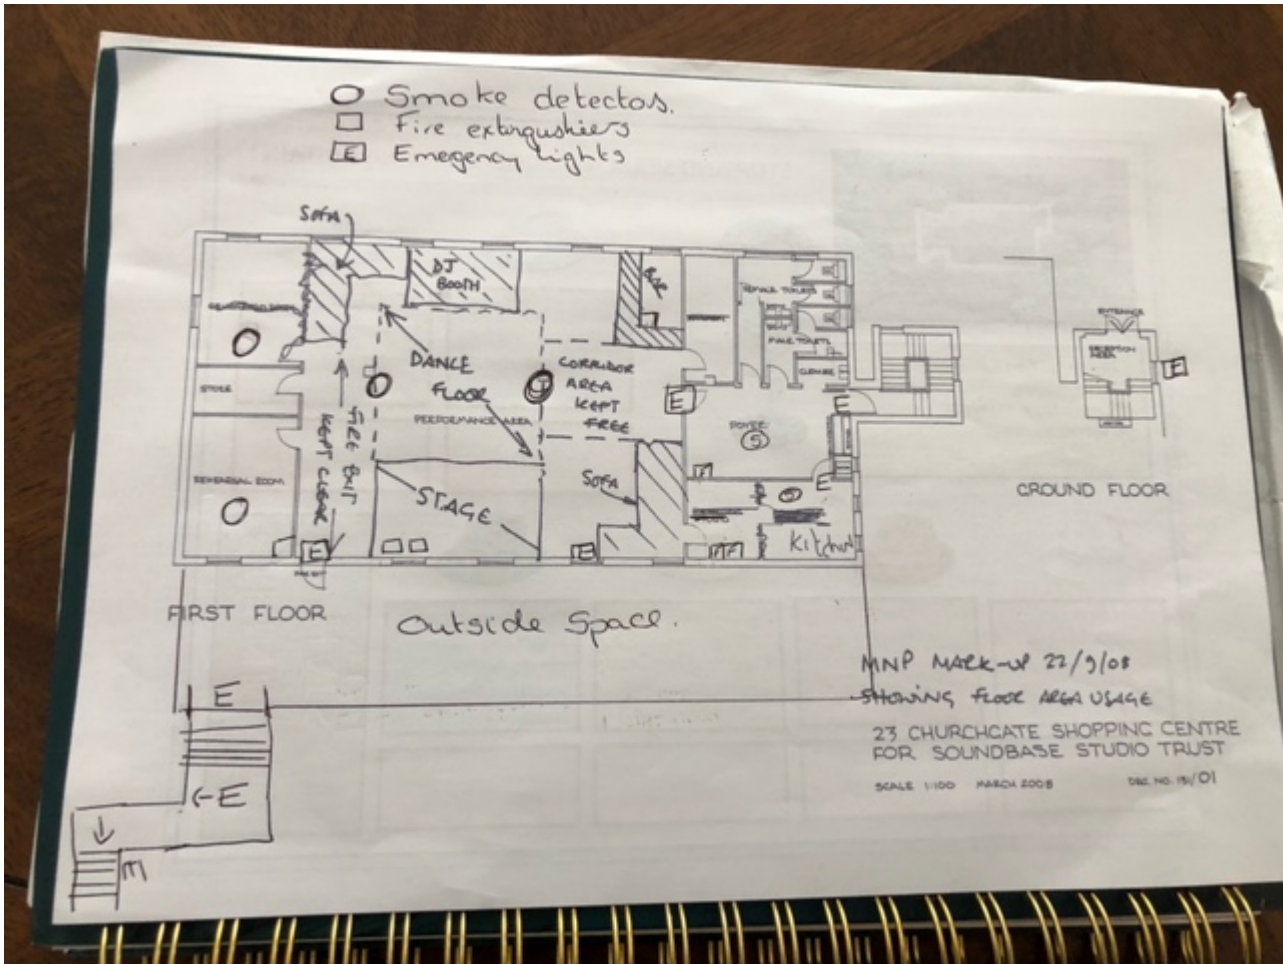 Smoke detectos.
Fire extingushiers
E Emegency lights
SOFA
DJ
BOOTH
FEMALE TOILETS
MALE TOILETS
CLEANER
ENTRANCE
RECEPTION
AREA
E
STORE
DANCE
FLOOR
PERFORMANCE AREA
CORRIDOR
AREA
KEPT
FREE
E
E
FOYER
S
FIRE EXIT
KEPT CLEAR
REHEARSAL ROOM
STAGE
SOFA
E
Kitchen
E
E
GROUND FLOOR
FIRST FLOOR
Outside Space.
MNP MARK-UP 22/9/08
SHOWING FLOOR AREA USAGE
23 CHURCHGATE SHOPPING CENTRE
FOR SOUNDBASE STUDIO TRUST
SCALE 1:100 MARCH 2008
E
←E
E